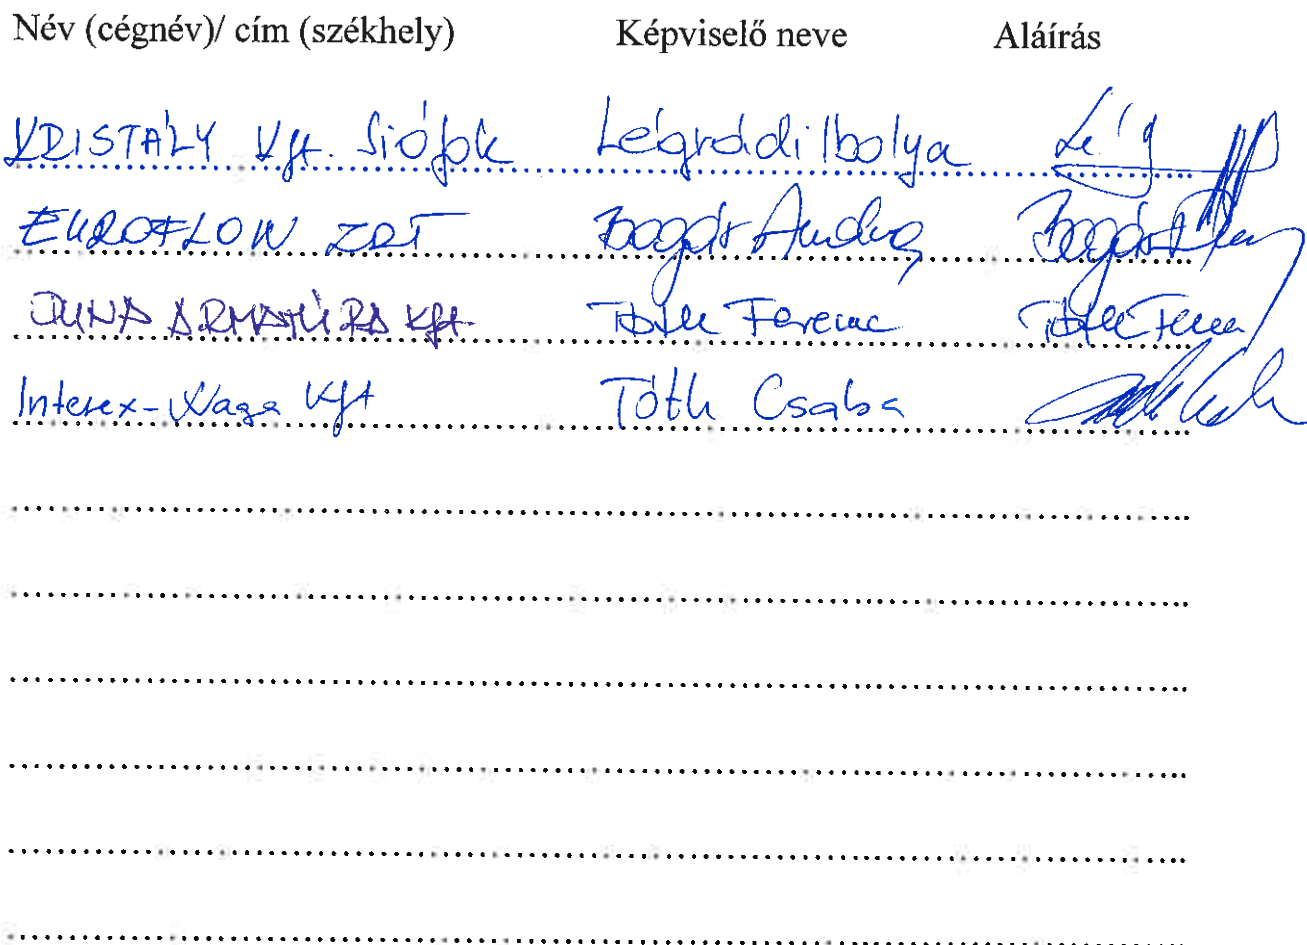 Név (cégnév)/ cím (székhely) Képviselő neve Aláírás
KRISTÁLY Kft. Siófok Légrádi Ibolya
EUROFLOW ZRT Bogár Andrea Bogár
DUNA ARMATÚRA Kft. Tóth Ferenc Tóth Feren
Interex-Waga Kft Tóth Csaba